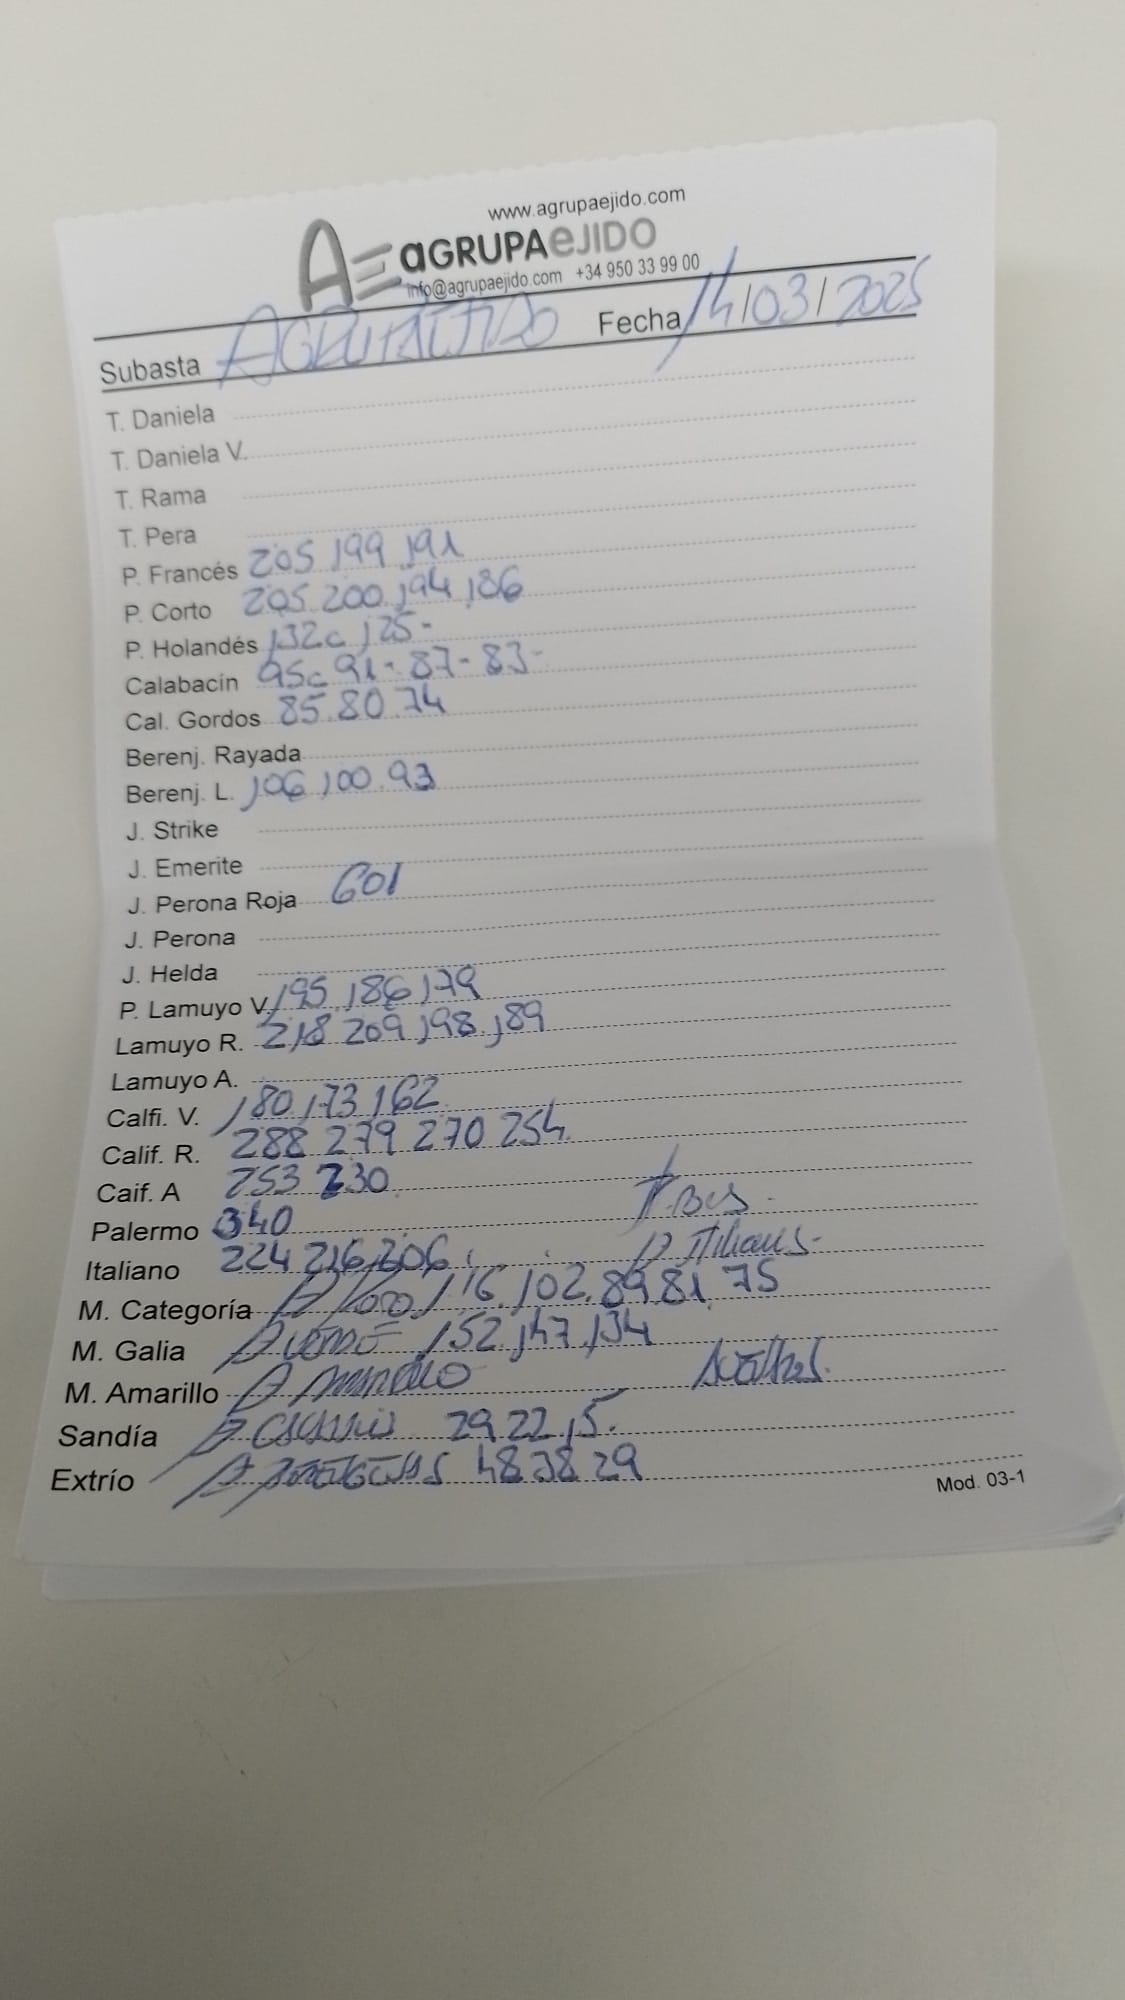 www.agrupaejido.com
AE aGRUPAeJIDO
info@agrupaejido.com +34 950 33 99 00
Subasta AGRUPAEJIDO Fecha 14/03/2025
T. Daniela
T. Daniela V.
T. Rama
T. Pera
P. Francés 205 199 191
P. Corto 205 200 194 186
P. Holandés 132c 125-
Calabacín 95c 91-87-83-
Cal. Gordos 85.80.74
Berenj. Rayada
Berenj. L. 106 100.93
J. Strike
J. Emerite
J. Perona Roja 601
J. Perona
J. Helda
P. Lamuyo V. 195 186 179
Lamuyo R. 218 209 198 189
Lamuyo A.
Calfi. V. 180 173 162
Calif. R. 288 279 270 254
Caif. A 253 230
Palermo 340
Italiano 224 216 206
M. Categoría 116.102.89 81 75
M. Galia 152 147 134
M. Amarillo
Sandía 29 22 15.
Extrío 48 38 29
Mod. 03-1